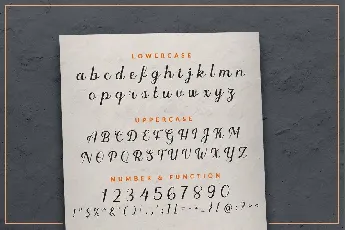 LOWERCASE
a b c d e f g h i j k l m n
o p q r s t u v w x y z
UPPERCASE
A B C D E F G H I J K L M
N O P Q R S T U V W X Y Z
NUMBER & FUNCTION
1 2 3 4 5 6 7 8 9 0